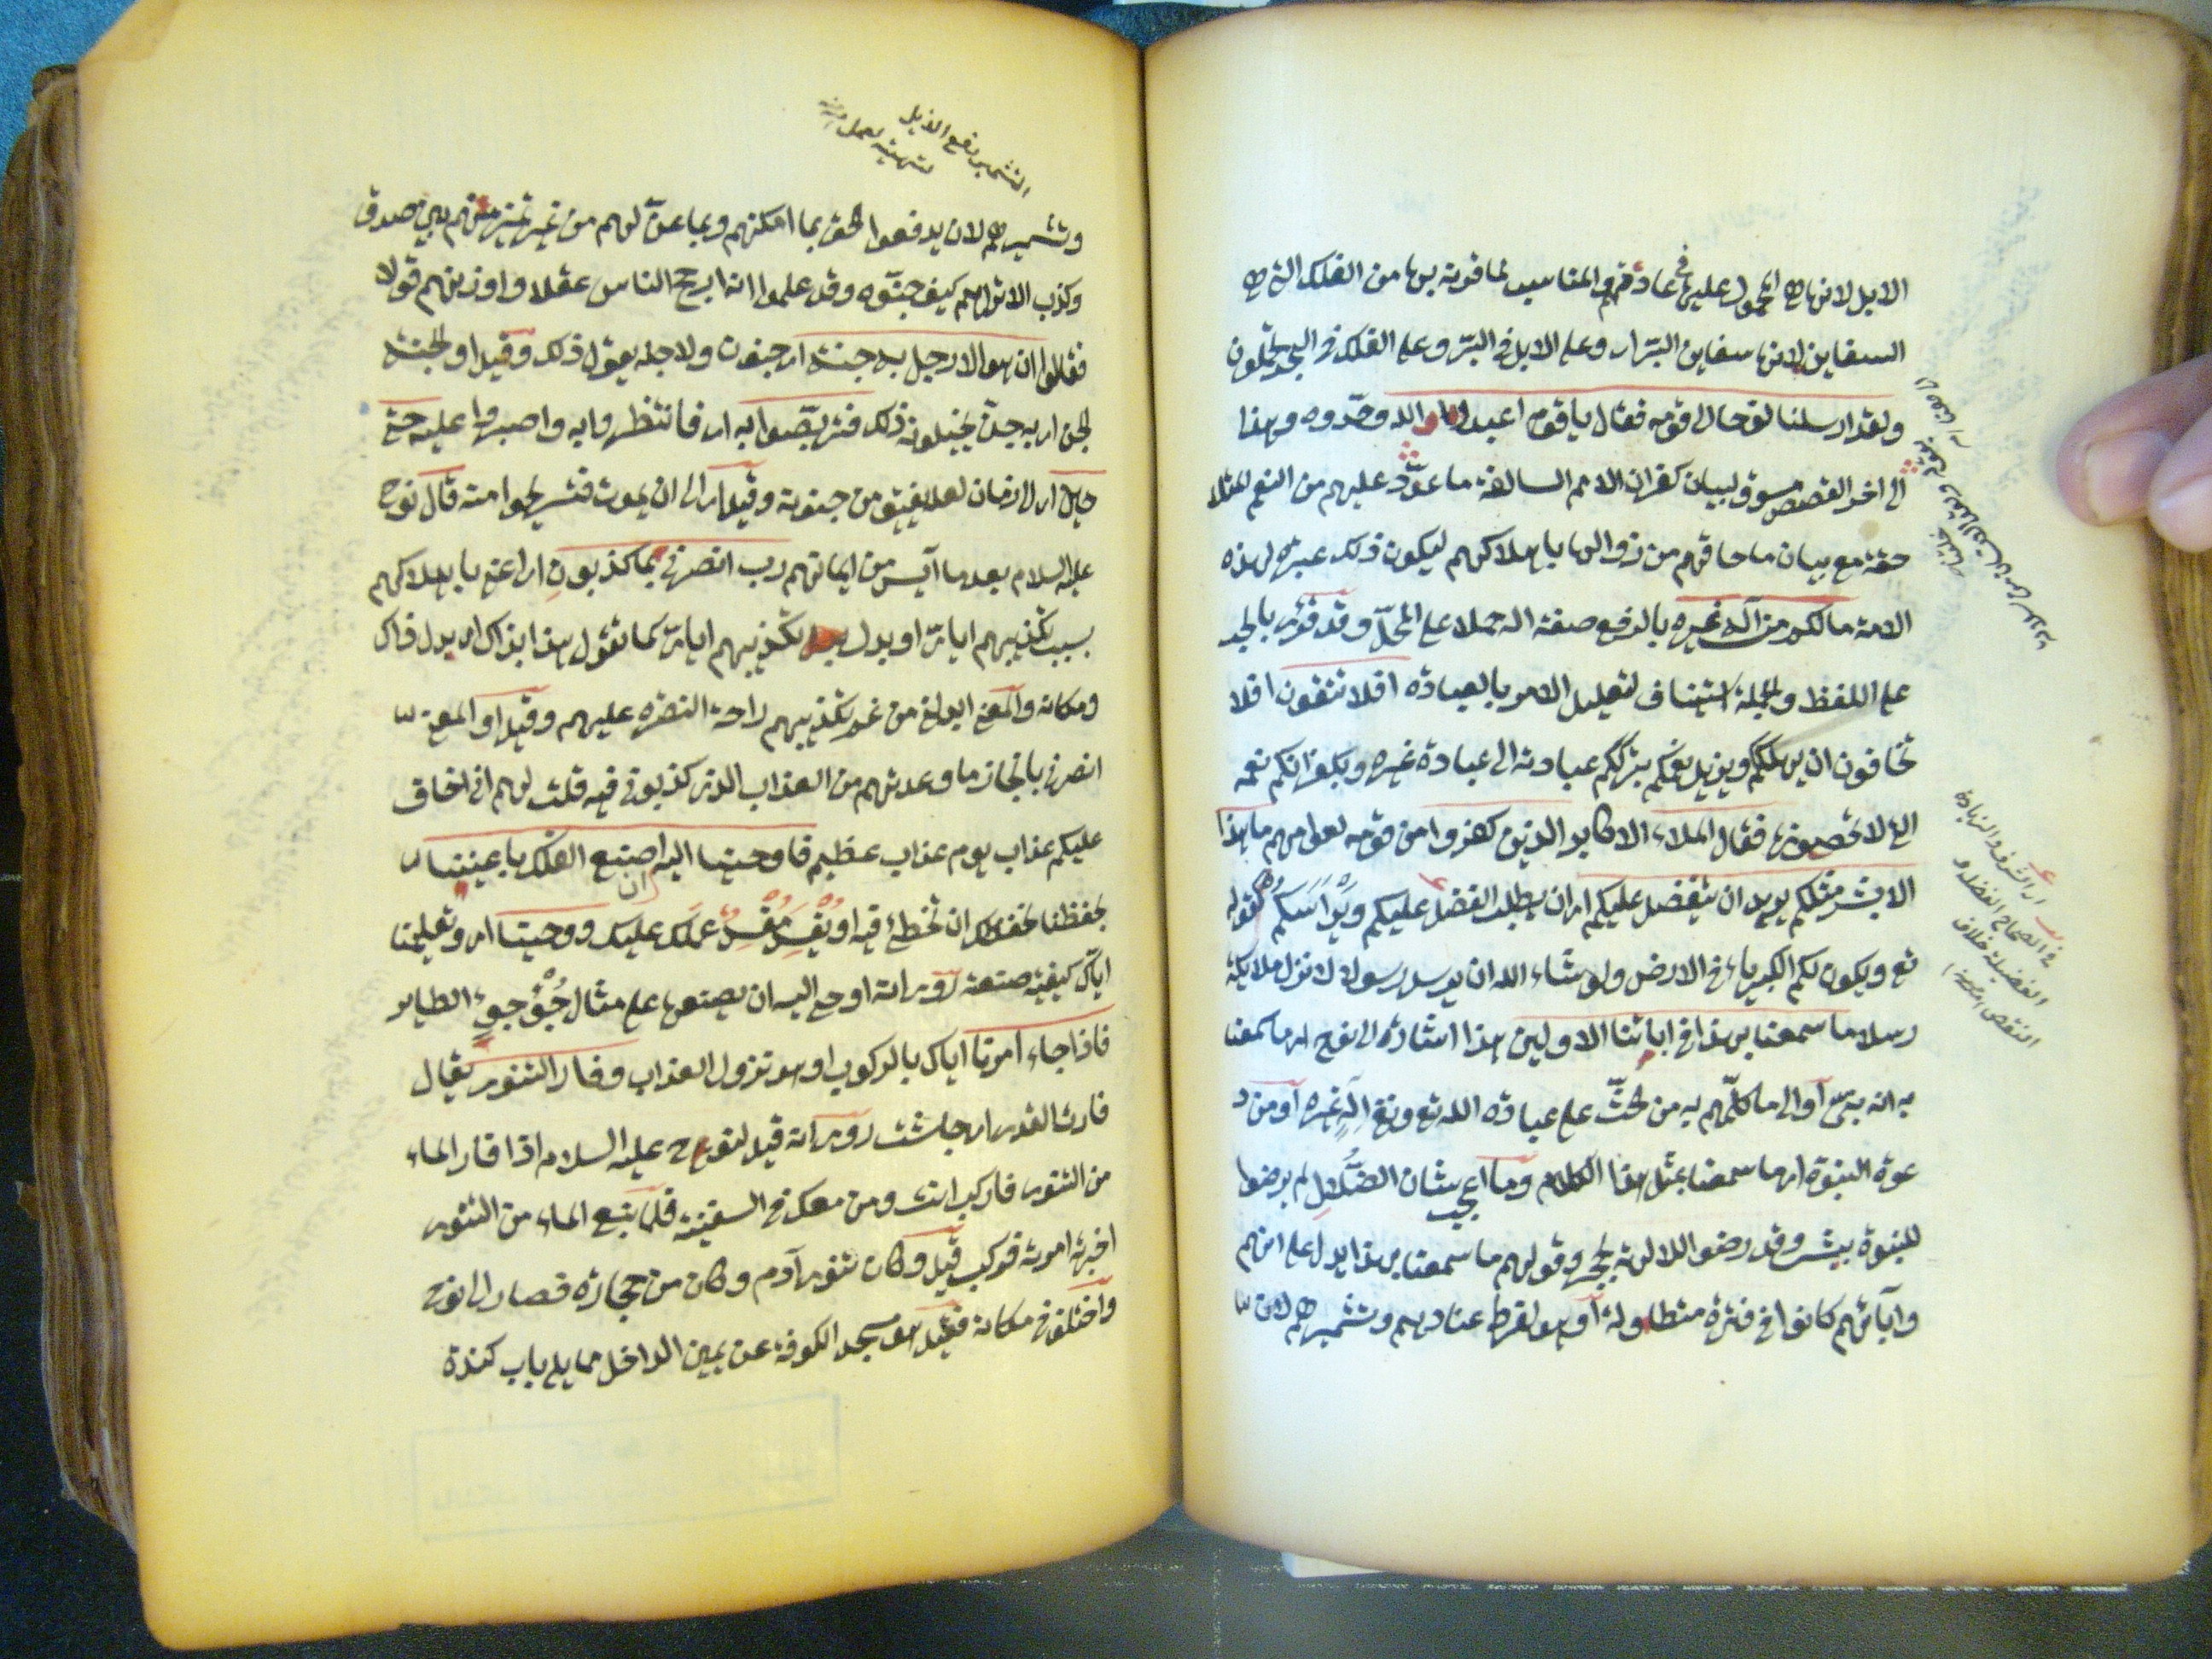 الابل لانها هى المحمول عليها فى عادتهم والمناسب لما قرنه بها من الفلك التى هى
السفاين لانها سفاين البر اى وعلى الابل فى البر وعلى الفلك فى البحر تحملون
ولقد ارسلنا نوحا الى قومه فقال يا قوم اعبدوا الله وحدوه وهذا
الى اخر القصص مسوق لبيان كفران الامم السالفة ما عدد عليهم من النعم المتلا
حقة مع بيان ما حاقهم من زوالها باهلاكهم ليكون ذلك عبرة لهذه
الامة ما لكم من اله غيره بالرفع صفة اله حملا على المحل وقد قرئ بالجر
على اللفظ والجملة استيناف لتعليل الامر بالعبادة افلا تتقون افلا
تخافون ان يهلككم ويزيل نعمكم بترككم عبادته الى عبادة غيره وبكفرانكم نعمه
التى لا تحصونها فقال الملاء الاكابر الذين كفروا من قومه لعوامهم ما هذا
الا بشر مثلكم يريد ان يتفضل عليكم اى ان يطلب الفضل عليكم ويرأسكم كقوله
تع ويكون لكم الكبرياء فى الارض ولو شاء الله ان يرسل رسولا لانزل ملايكة
رسلا ما سمعنا بهذا فى ابائنا الاولين هذا اشارة الى نوح اى ما سمعنا
به انه نبى أو الى ما كلمهم به من الحث على عبادة الله تع ونفى اله غيره أو من د
عوة النبوة اى ما سمعنا بمثل هذا الكلام وما اعجب شان الضلال لم يرضوا
للنبوة ببشر وقد رضوا للالوهة بحجر وقولهم ما سمعنا بهذا يدل على انهم
وآبائهم كانوا فى فترة متطاولة أو هو لفرط عنادهم وتشميرهم لان
فى الصحاح الفضل و
الفضيلة خلاف
النقص
التشمير رفع الذيل
وتشميرهم لان يدفعوا الحق بما امكنهم وبما عن لهم من غير تميز منهم بين صدق
وكذب الا تراهم كيف جننوه وقد علموا انه ارجح الناس عقلا واوزنهم قولا
فقالوا ان هو الا رجل به جنة اى جنون ولاجله يقول ذلك وقيل او الجنة
الجن اى به جن يخيلونه ذلك فتربصوا به اى فانتظروا به واصبروا عليه حتى
حين اى الى زمان لعله يفيق من جنونه وقيل اى الى ان يموت فتستريحوا منه قال نوح
عليه السلام بعد ما آيس من ايمانهم رب انصرنى بما كذبون اى اعنى باهلاكهم
بسبب تكذيبهم اياى او بدل تكذيبهم اياى كما تقول هذا بذاك اى بدل ذاك
ومكانه والمعنى ابدلنى من غم تكذيبهم راحة النصرة عليهم وقيل او المعنى
انصرنى بانجاز ما وعدتهم من العذاب الذى كذبونى فيه قلت لهم انى اخاف
عليكم عذاب يوم عذاب عظيم فاوحينا اليه ان اصنع الفلك باعيننا
بحفظنا نحفظك ان تخطئ فيه او يفسد مفسد عملك عليك ووحينا اى وتعليمنا
اياك كيفية صنعه روى انه اوحى اليه ان يصنعها على مثال جؤجؤ الطاير
فاذا جاء امرنا اياك بالركوب او هو نزول العذاب وفار التنور يقال
فارت القدر اى جاشت روى انه قيل لنوح عليه السلام اذا فار الماء
من التنور فاركب انت ومن معك فى السفينة فلما نبع الماء من التنور
اخبرته امرته فركب قيل وكان تنور آدم وكان من حجارة فصار الى نوح
واختلف فى مكانه فقيل هو مسجد الكوفة عن يمين الداخل مما يلى باب كندة